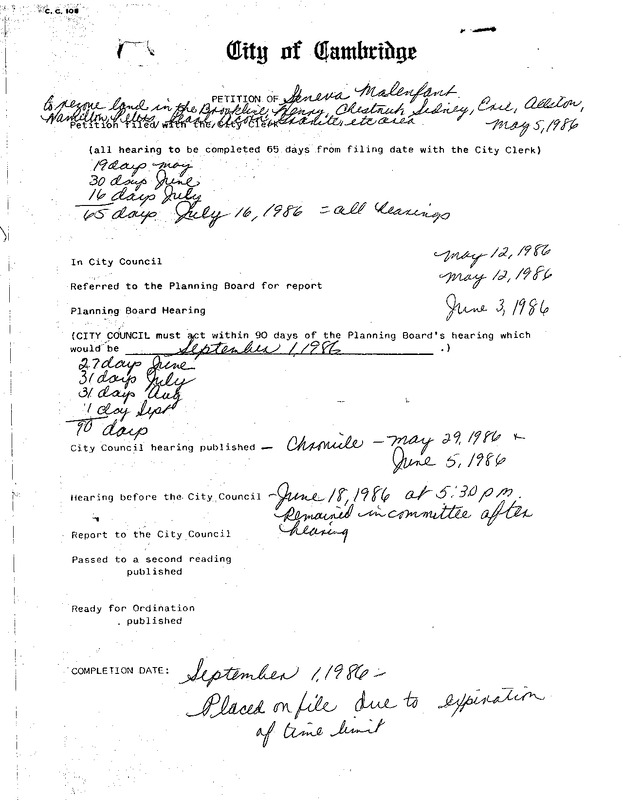 C. C. 108
City of Cambridge
PETITION OF Geneva Malenfant
to rezone land in the Brookline, Henry, Chestnut, Sidney, Erie, Allston,
Hamilton, Pearl, Acorn, Granite, etc area
Petition filed with the City Clerk May 5, 1986
(all hearing to be completed 65 days from filing date with the City Clerk)
19 days may
30 days June
16 days July
65 days July 16, 1986 = all hearings
In City Council may 12, 1986
Referred to the Planning Board for report may 12, 1986
Planning Board Hearing June 3, 1986
(CITY COUNCIL must act within 90 days of the Planning Board's hearing which
would be September 1, 1986 .)
27 days June
31 days July
31 days Aug
1 day Sept
90 days
City Council hearing published - Chronicle - may 29, 1986 +
June 5, 1986
Hearing before the City Council - June 18, 1986 at 5:30 p.m.
Remained in committee after
hearing
Report to the City Council
Passed to a second reading
published
Ready for Ordination
. published
COMPLETION DATE: September 1, 1986 -
Placed on file due to expiration
of time limit